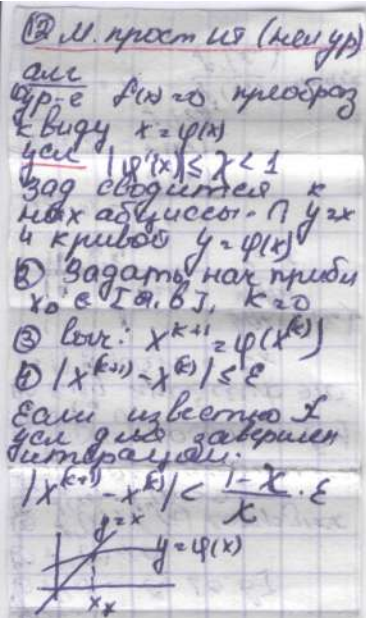 ⑫ М. прост ит (нел ур)
алг
ур-е f(x)=0 преобраз
к виду x = φ(x)
усл |φ'(x)| ≤ χ < 1
Зад сводится к
нах абциссы ∩ y=x
и кривой y = φ(x)
② Задать нач прибл
x₀ ∈ [a, b], k=0
③ выч: x^(k+1) = φ(x^(k))
④ |x^(k+1) - x^(k)| ≤ ε
Если известно χ
усл для завершен
итераций:
|x^(k+1) - x^(k)| < (1-χ)/χ · ε
y=x
y=φ(x)
x*